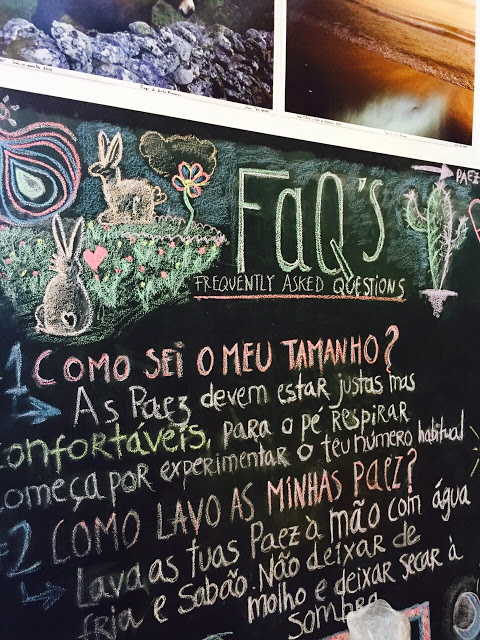 PAEZ
FaQ's
FREQUENTLY ASKED QUESTIONS
1 COMO SEI O MEU TAMANHO?
As Paez devem estar justas mas
confortáveis, para o pé respirar
começa por experimentar o teu número habitual
#2 COMO LAVO AS MINHAS PAEZ?
Lava as tuas Paez à mão com água
fria e sabão. Não deixar de
molho e deixar secar à
sombra